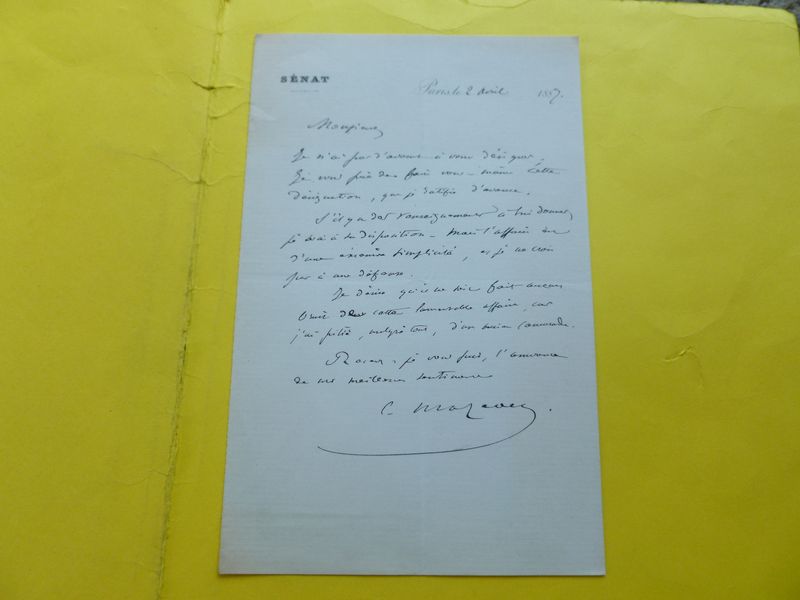 SÉNAT
Paris le 2 Avril 1887.
Monsieur
Je n'ai pas d'avoué à vous désigner.
Je vous prie de faire vous-même cette
désignation, que je ratifie d'avance.
S'il y a des renseignements à lui donner,
je suis à sa disposition - mais l'affaire est
d'une extrême simplicité, et je ne crois
pas à une défense.
Je désire qu'il ne soit fait aucun
bruit de cette lamentable affaire, car
j'ai pitié, malgré tout, d'un ancien camarade.
Recevez, je vous prie, l'assurance
de mes meilleurs sentiments
C.